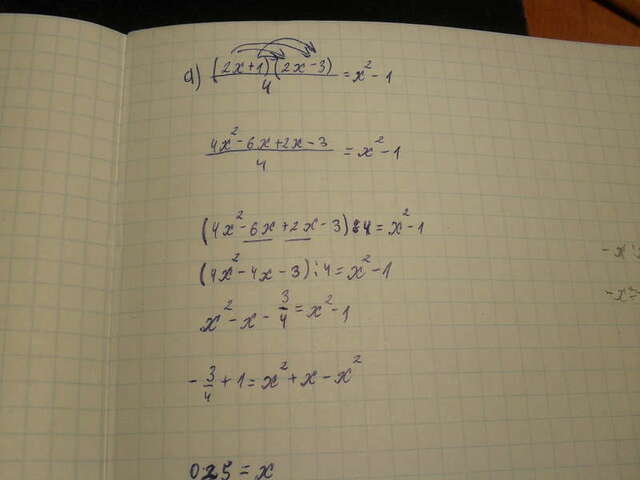 a) (2x+1)(2x-3)/4 = x²-1
4x²-6x+2x-3/4 = x²-1
(4x²-6x+2x-3):4=x²-1
(4x²-4x-3):4=x²-1
x²-x-3/4=x²-1
-3/4+1=x²+x-x²
0.25=x